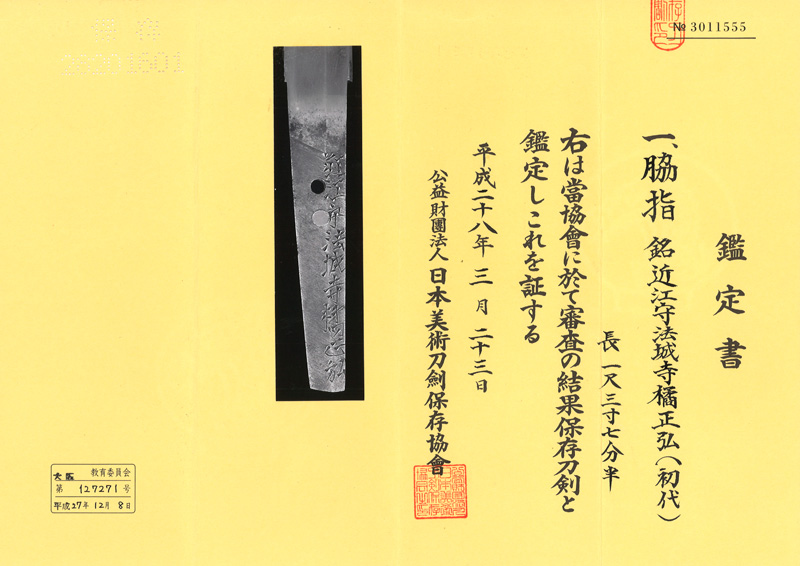 № 3011555
鑑定書
一、脇指 銘 近江守法城寺橘正弘(初代)
長一尺三寸七分半
右は當協會に於て審査の結果保存刀剣と
鑑定しこれを証する
平成二十八年 三月 二十三日
公益財團法人 日本美術刀劍保存協會
大阪 教育委員会
第 127271 号
平成27年 12月 8日